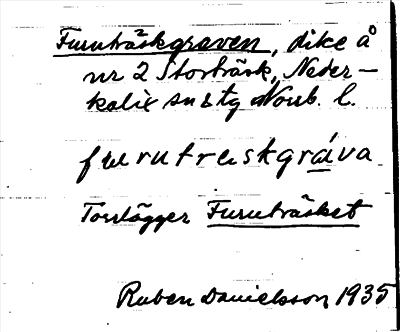 Furuträskgraven, dike å
nr 2 Storträsk, Neder-
kalix sn & tg Norrb. l.
furutreskgráva
Torrlägger Furuträsket
Ruben Danielsson 1935